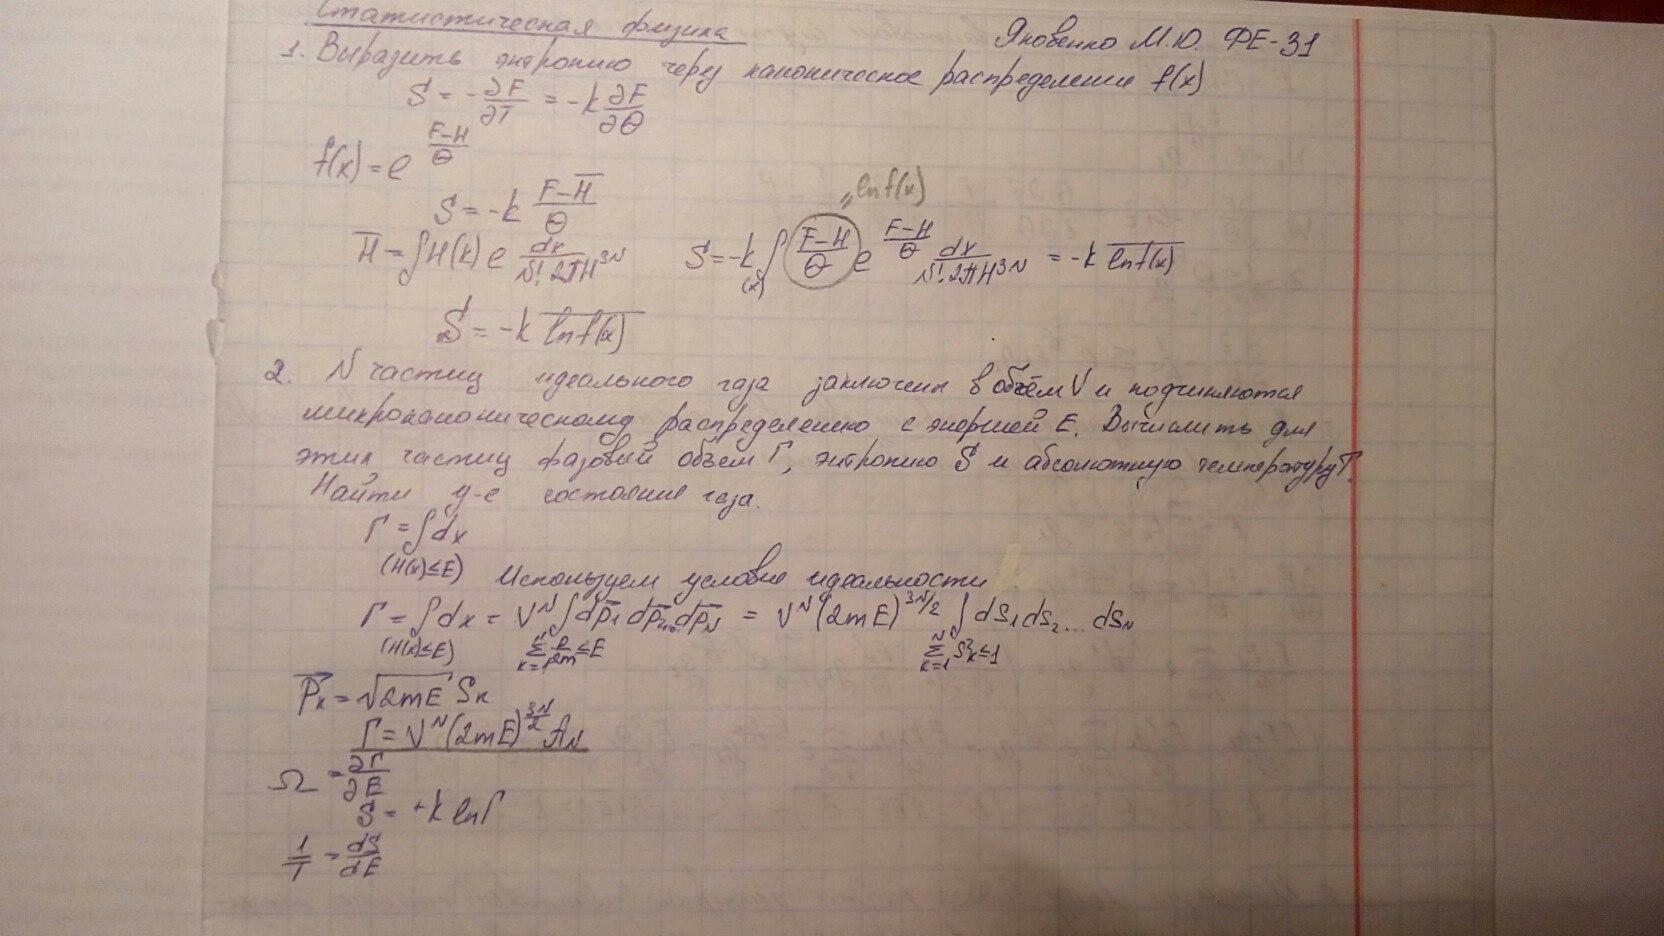 Статистическая физика
Яковенко М.Ю. ФЕ-31
1. Выразить энтропию через каноническое распределение f(x)
S = -∂F/∂T = -k ∂F/∂Θ
f(x) = e^((F-H)/Θ)
S = -k (F-H̅)/Θ
= ln f(x)
H̅ = ∫H(k) e dx/(N! 2πH^3N)   S = -k ∫_(x) (F-H)/Θ e^((F-H)/Θ) dx/(N! 2πH^3N) = -k \overline{ln f(x)}
S = -k \overline{ln f(x)}
2. N частиц идеального газа заключены в объём V и подчиняются
микроканоническому распределению с энергией E. Вычислить для
этих частиц фазовый объем Г, энтропию S и абсолютную температуру T.
Найти у-е состояния газа.
Г = ∫dx
(H(x)≤E) Используем условие идеальности
Г = ∫dx = V^N ∫dp⃗₁ dp⃗₂...dp⃗_N = V^N (2mE)^(3N/2) ∫ds₁ds₂...ds_N
(H(x)≤E) Σ_(k=1)^N p²/2m ≤E Σ_(k=1)^N S²_k≤1
p⃗_k = √(2mE) S_k
Г = V^N (2mE)^(3N/2) A_N
Ω = ∂Г/∂E
S = +k ln Г
1/T = dS/dE